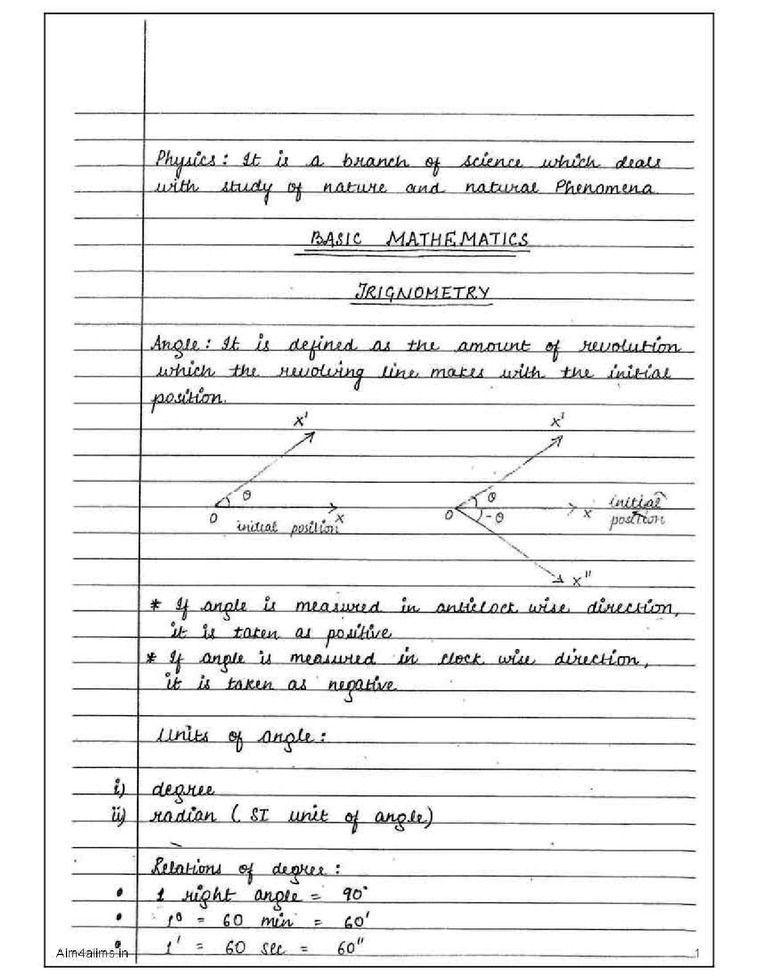 Physics : It is a branch of science which deals
with study of nature and natural Phenomena.
BASIC MATHEMATICS
TRIGNOMETRY
Angle : It is defined as the amount of revolution
which the revolving line makes with the initial
position.
X'
θ
O
X
initial position
X'
θ
O
-θ
X
initial
position
X"
* If angle is measured in anticlock wise direction,
it is taken as positive
* If angle is measured in clock wise direction,
it is taken as negative
Units of angle :
i) degree
ii) radian ( SI unit of angle)
Relations of degree :
• 1 right angle = 90°
• 1° = 60 min = 60'
• 1' = 60 sec = 60"
Aim4aiims.in
1